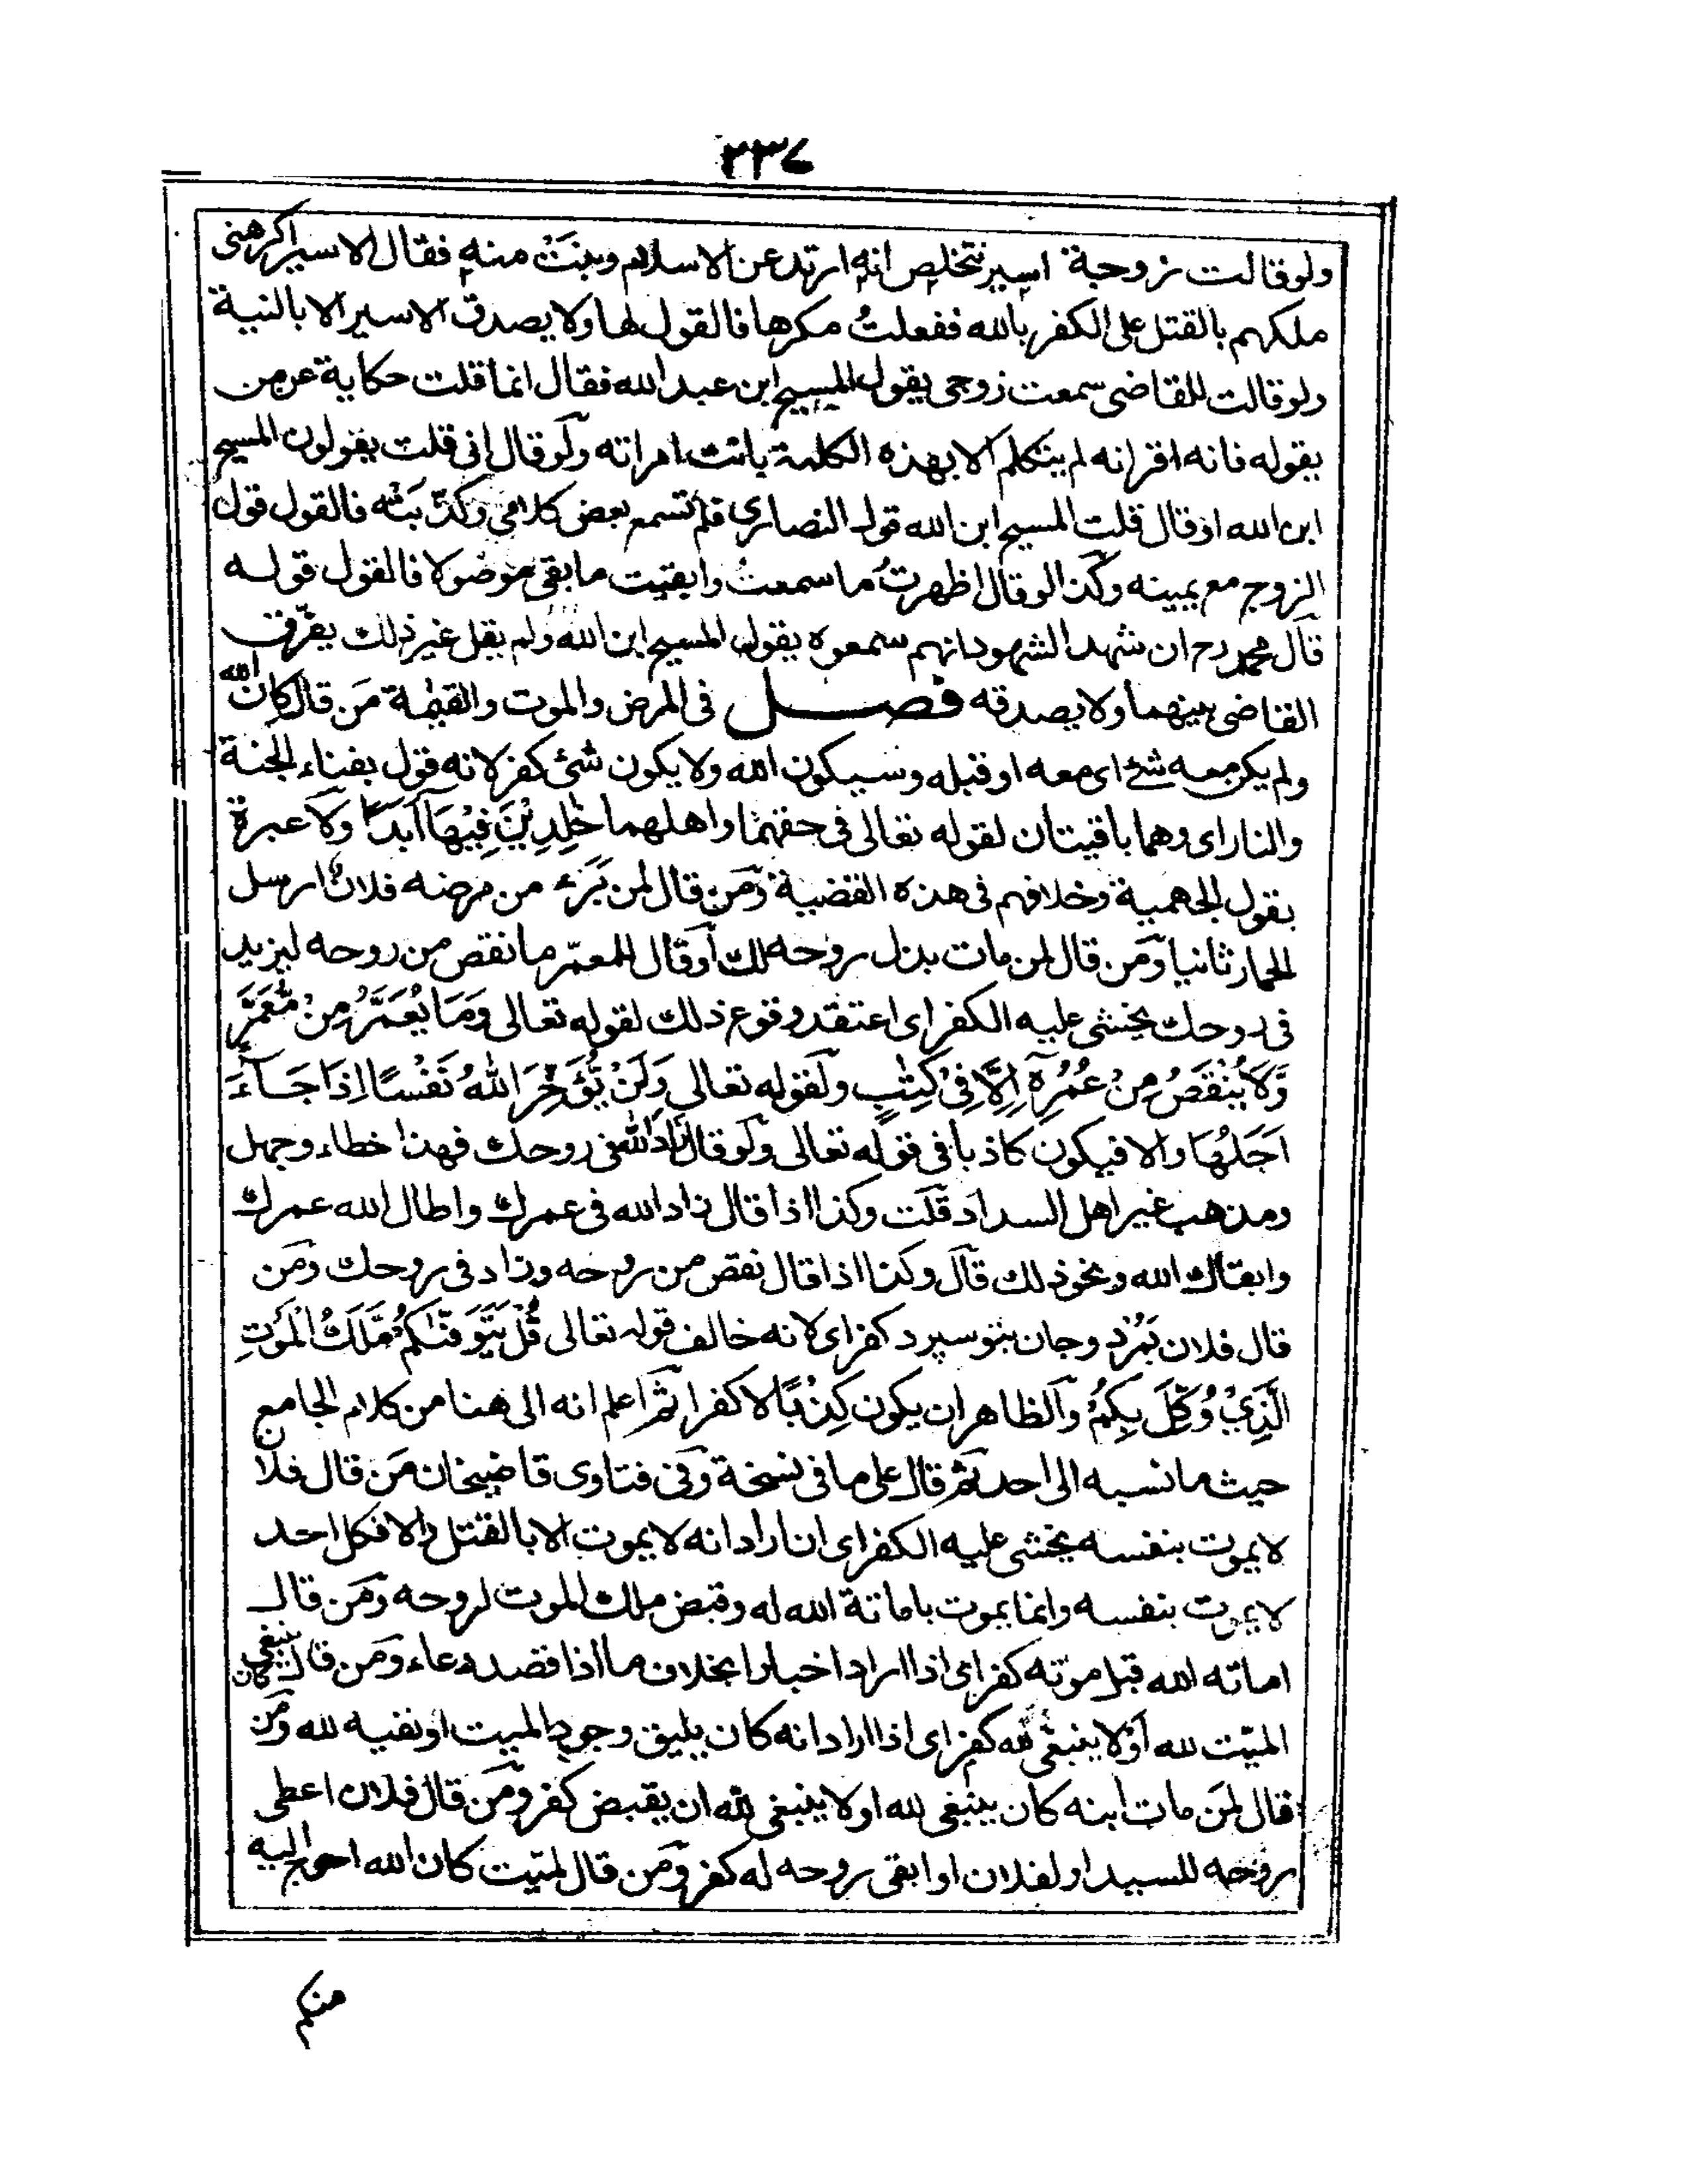 ٢٣٧
ولو قالت زوجة اسير تخلص انه ارتد عن الاسلام وبنت منه فقال الاسير اكرهنى
ملكهم بالقتل على الكفر بالله ففعلتُ مكرها فالقول لها ولا يصدق الاسير الا بالنبية
ولو قالت للقاضى سمعت زوجى يقول المسيح ابن عبد الله فقال انما قلت حكاية عن من
يقوله فانه اقر انه لم يتكلم الا بهذه الكلمة بانت امراته ولو قال انى قلت يقولون المسيح
ابن الله اذ قال قلت المسيح ابن الله قول النصارى فلم تسمع بعض كلامى وكذبته فالقول قول
الزوج مع يمينه وكذا لو قال اظهرتُ ما سمعت وابقيت ما بقى موصولا فالقول قوله
قال محمد رح ان شهد الشهود انهم سمعوه يقول المسيح ابن الله ولم يقل غير ذلك يفرّق
القاضى بينهما ولا يصدقه فصل فى المرض والموت والقيمة مَن قال كان الله
ولم يكن معه شئ اى معه او قبله وسيكون الله ولا يكون شئ كفر لانه قول بفناء الجنة
والنار اى وهما باقيتان لقوله تعالى فى حقهما واهلهما خٰلِدِيْنَ فِيْهَا اَبَدًا ولا عبرة
بقول الجهمية وخلافهم فى هذه القضية ومَن قال لمن بَرِءَ من مرضه فلان ارسل
الحمار ثانيا ومَن قال لمن مات بذل روحه لك او قال للمعمّر ما نقص من روحه ليزيد
فى روحك يخشى عليه الكفر اى اعتقد وقوع ذلك لقوله تعالى وَمَا يُعَمَّرُ مِنْ مُّعَمَّرٍ
وَّلَا يُنْقَصُ مِنْ عُمُرِهٖٓ اِلَّا فِىْ كِتٰبٍ ولقوله تعالى وَلَنْ يُّؤَخِّرَ اللهُ نَفْسًا اِذَا جَآءَ
اَجَلُهَا والا فيكون كاذبا فى قوله تعالى ولو قال زاد الله فى روحك فهذا خطاء وجهل
ومذهب غير اهل السداد قلت وكذا اذا قال زاد الله فى عمرك واطال الله عمرك
وابقاك الله ونحو ذلك قال وكذا اذا قال نقص من روحه وزاد فى روحك ومَن
قال فلان بَمُرْد وجان بتو سپرد كفر اى لانه خالف قوله تعالى قُلْ يَتَوَفّٰىكُمْ مَّلَكُ الْمَوْتِ
الَّذِيْ وُكِّلَ بِكُمْ والظاهر ان يكون كِذْبًا لا كفرا ثم اعلم انه الى هنا من كلام الجامع
حيث ما نسبه الى احد ثم قال على ما فى نسخة وفى فتاوى قاضيخان مَن قال فلان
لا يموت بنفسه يخشى عليه الكفر اى ان اراد انه لا يموت الا بالقتل والا فكل احد
لا يموت بنفسه وانما يموت باماتة الله له وقبض ملك الموت لروحه ومَن قال
اماته الله قبل موته كفر اى اذا اراد اخبارا بخلاف ما اذا قصد دعاء ومَن قال كان ينبغى
الميّت لله او لا ينبغى لله كفر اى اذا اراد انه كان يليق وجود الميت او نفيه لله ومَن
قال لمَن مات ابنه كان ينبغى لله او لا ينبغى لله ان يقبض كفر ومَن قال فلان اعطى
روحه للسيد او لفلان او ابقى روحه له كفر ومَن قال لميّت كان الله احوج اليه
منكم